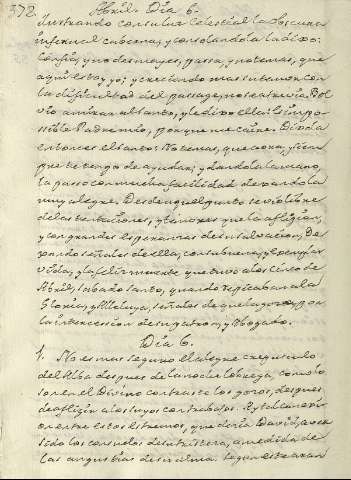 372
Abril. Dia 6.
ilustrando con su luz Celestial la obscura
infernal cabeza, y consolandola la dixo:
Confia, y no desmayes, passa, y no temas, que
aqui estoy yo; y creciendo mas su temor con
la dificultad del passage, no se atrevia. Bol
vio a mirar al Santo, y le dixo ella: Es impo-
ssible Padre mio, porque me caire. Dixola
entonces el Santo: No temas, que
pre te tengo de ayudar; y dandola la mano,
la passo con mucha facilidad dexandola
muy alegre. Desde aquel punto se vio libre
de las tentaciones, y temores que la afligian,
y con grandes esperanzas de su salvacion, De
xando señales de ella, con su buena, y exemplar
vida, y la feliz muerte que tuvo a los cinco de
Abril, Sabado Santo, quando repicaban a la
Gloria, y Alleluya, señales de que la goza por
la intercession de su Patron, y Abogado.
Dia 6.
1. No es mas seguro el alegre crepusculo
del Alba despues de la noche lobrega, como lo
son en el Divino contraste los gozos, despues
de afligir a los suyos con trabajos.
entre estos estremos, que decia David, aver
sido los consuelos de su tristeza, a medida de
las angustias de su alma.